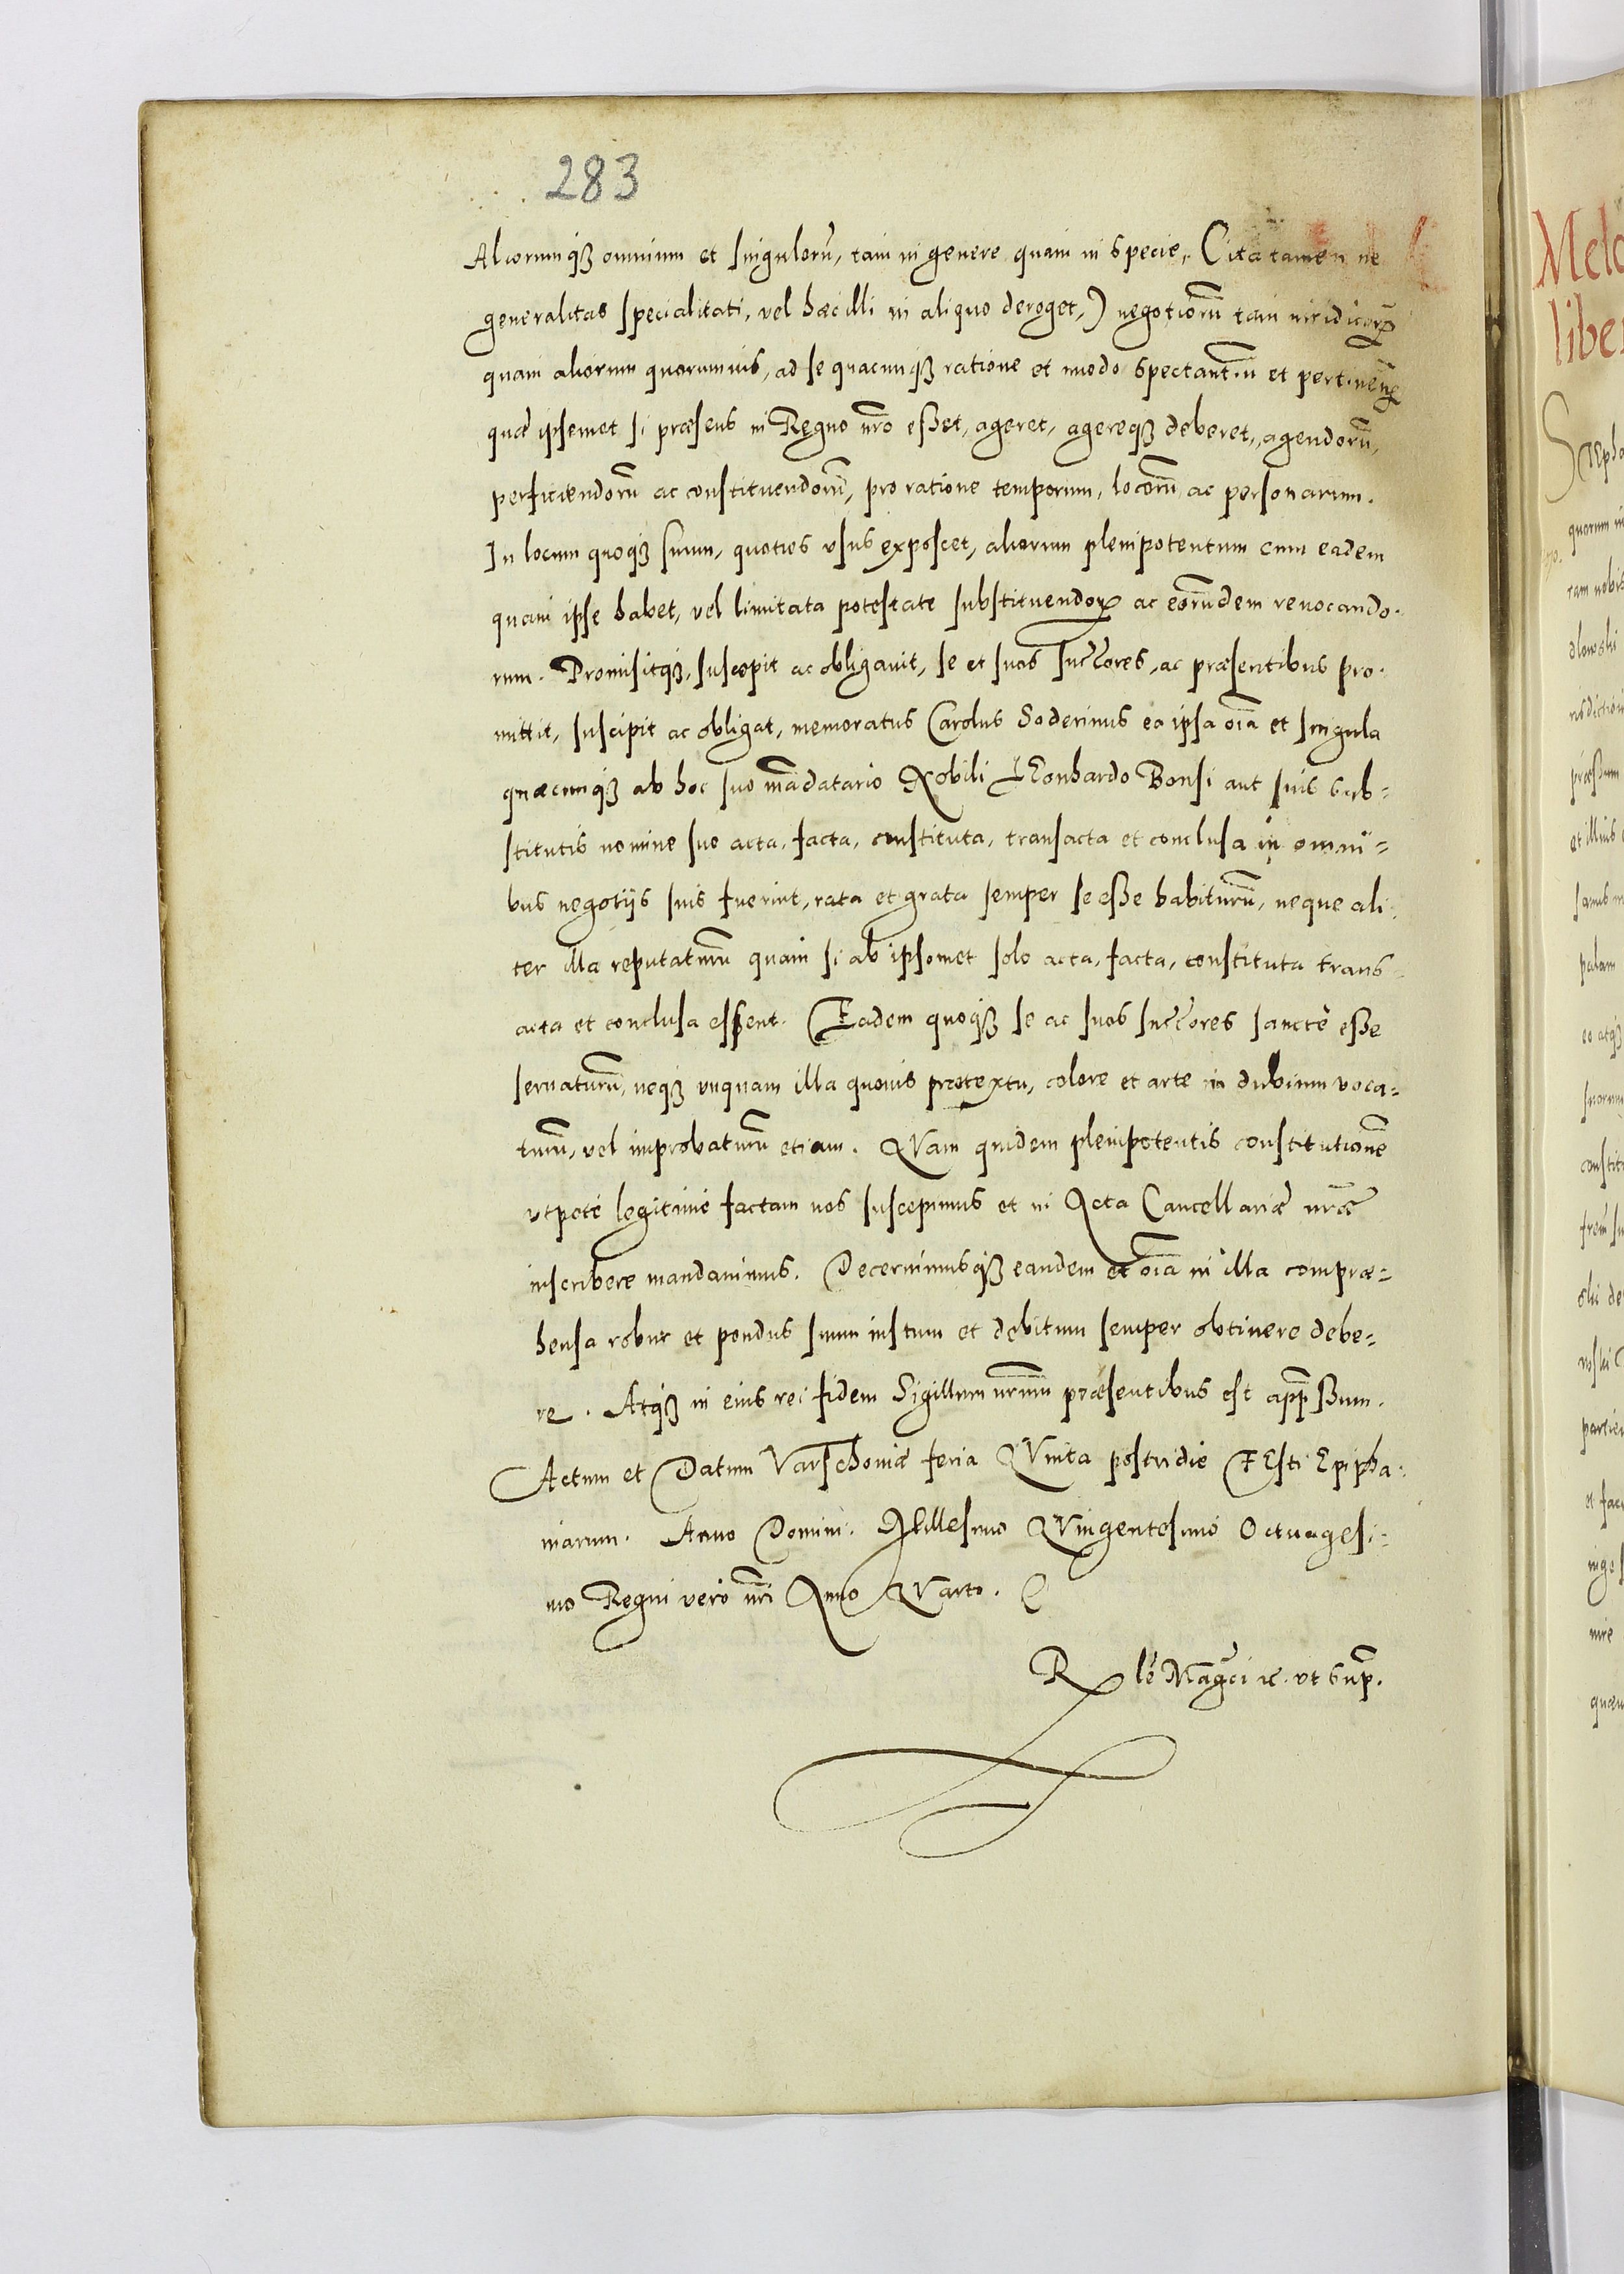 283
Aliorumq₃ omnium et singulorũ, tam in genere quam in specie, (ita tamen ne
generalitas specialitati, vel hæc illi in aliquo deroget,) negotiorũ tam iuridicorꝝ
quam aliorum quorumuis, ad se quacunq₃ ratione et modo spectantiũ et pertinen̄
quæ ipsemet si præsens in Regno nr̃o eßet, ageret, agereq₃ deberet, agendorũ,
perficiendorũ ac constituendorũ, pro ratione temporum, locorũ ac personarum.
In locum quoq₃ suum, quoties vsus exposcet, aliorum plenipotentum cum eadem
quam ipse habet, vel limitata potestate substituendorꝝ ac eorũdem reuocando-
rum. Promisitq₃, suscepit ac obligauit, se et suos succ̃ores, ac præsentibus pro-
mittit, suscipit ac obligat, memoratus Carolus Soderinus ea ipsa oĩa et singula
quæcunq₃ ab hoc suo mãdatario Nobili Leonhardo Bonsi aut suis sub=
stitutis nomine suo acta, facta, constituta, transacta et conclusa in omni=
bus negotijs suis fuerint, rata et grata semper se eße habiturũ, neque ali-
ter illa reputaturũ quam si ab ipsomet solo acta, facta, constituta trans-
acta et conclusa essent. Eadem quoq₃ se ac suos succ̃ores sanctè eße
seruaturũ, neq₃ vnquam illa quouis prætextu, colore et arte in dubium voca=
turũ, vel improbaturũ etiam. QVam quidem plenipotentis constitutionẽ
vtpote legitime factam nos suscepimus et in Acta Cancellariæ nr̃æ
inscribere mandauimus. Decernimusq₃ eandem et oĩa in illa compræ=
hensa robur et pondus suum iustum et debitum semper obtinere debe=
re. Atq₃ in eius rei fidem Sigillum nr̃um præsentibus est app̃ßum.
Actum et Datum Varschouiæ feria QVinta postridie FEsti Epipha-
niarum. Anno Domini. Millesimo QVingentesimo Octuagesi-
mo Regni vero nr̃i Anno QVarto.
R lẽ Mag̃ci ꝛc. vt sup̃.
Melc
liber